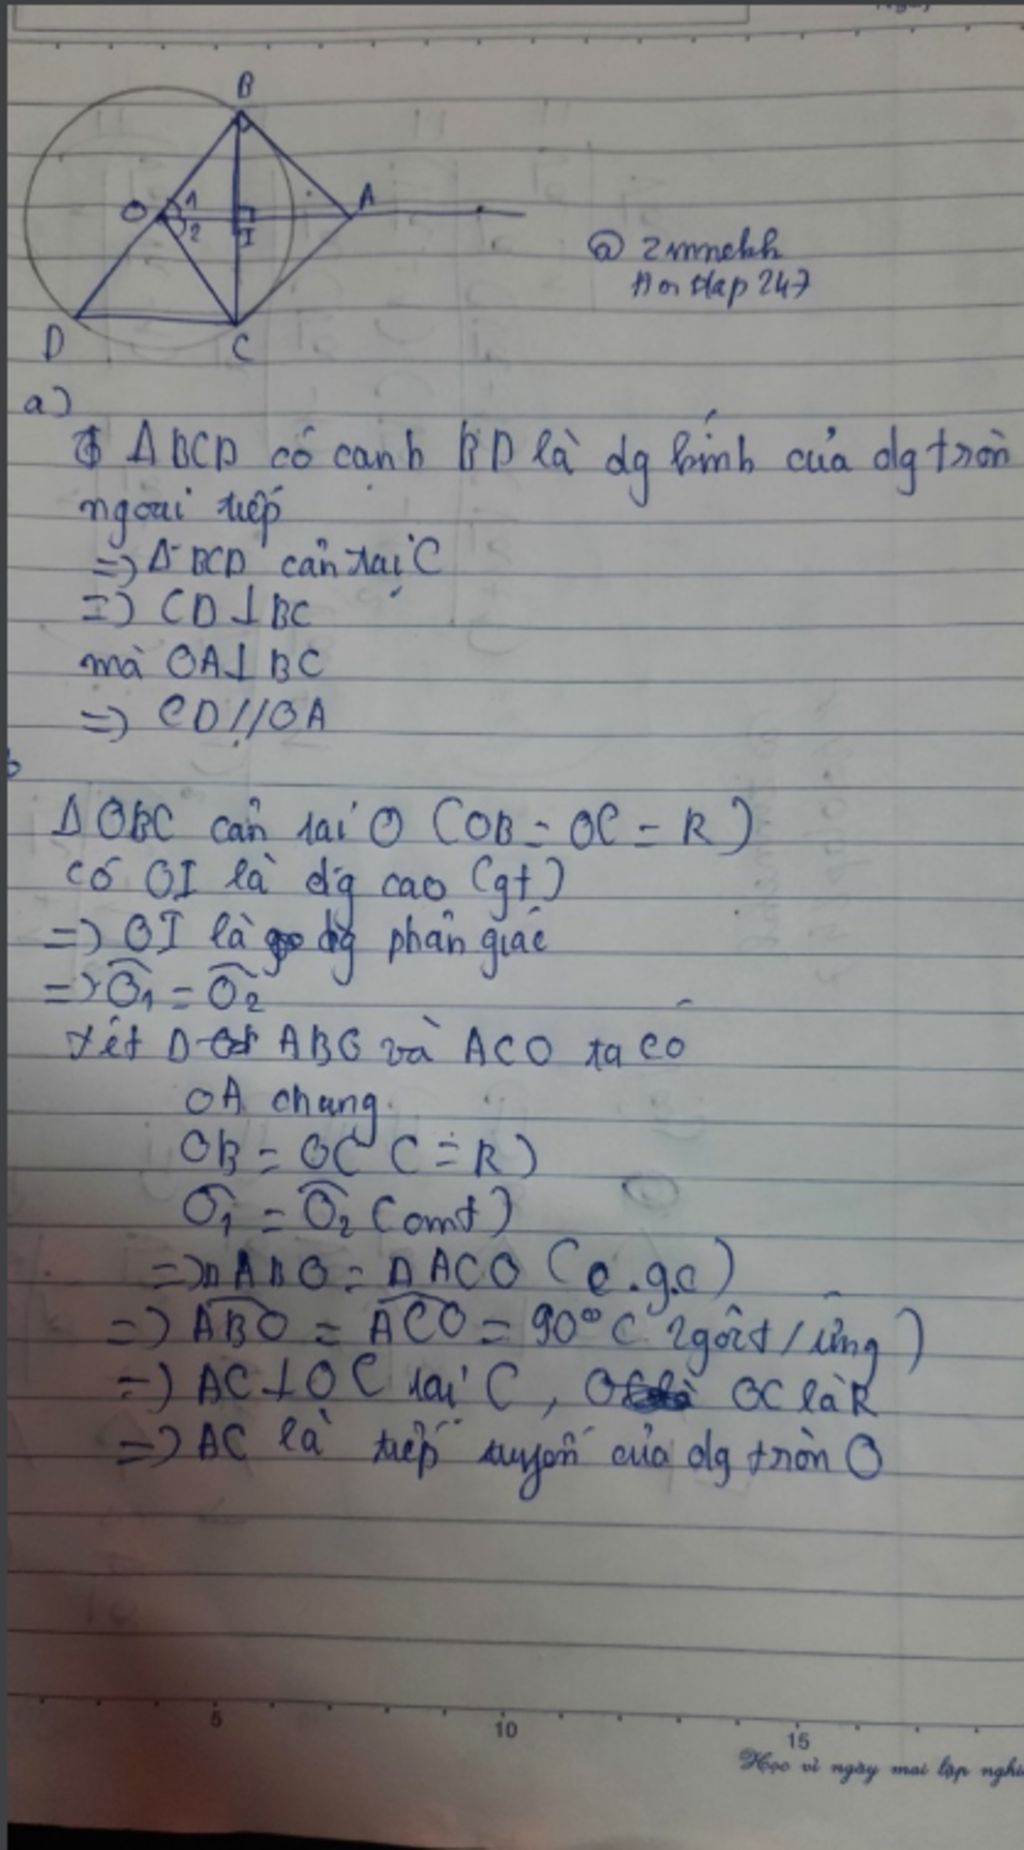 B
O 1 A
2 I
@ zmnehh
Hoi đáp 247
D C
a)
Δ BCD có cạnh BD là đg kính của đg tròn
ngoại tiếp
=> Δ BCD cân tại C
=> CD ⊥ BC
mà OA ⊥ BC
=> CD // OA
b
Δ OBC cân tại O (OB = OC = R)
có OI là đg cao (gt)
=> OI là đg phân giác
=> Ô1 = Ô2
xét Δ ABO và ACO ta có
OA chung
OB = OC (= R)
Ô1 = Ô2 (cmt)
=> Δ ABO = Δ ACO (c.g.c)
=> ABO = ACO = 90° ( 2 góc t/ứng )
=> AC ⊥ OC tại C, OC là R
=> AC là tiếp tuyến của đg tròn O
5 10 15
Học vì ngày mai lập nghi